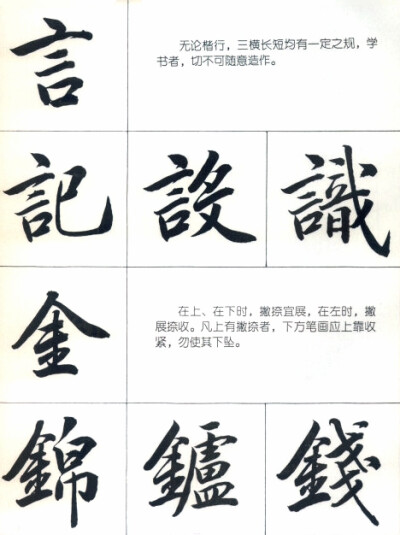 言
无论楷行，三横长短均有一定之规，学
书者，切不可随意造作。
記 設 識
金
在上、在下时，撇捺宜展，在左时，撇
展捺收。凡上有撇捺者，下方笔画应上靠收
紧，勿使其下坠。
錦 鑪 錢